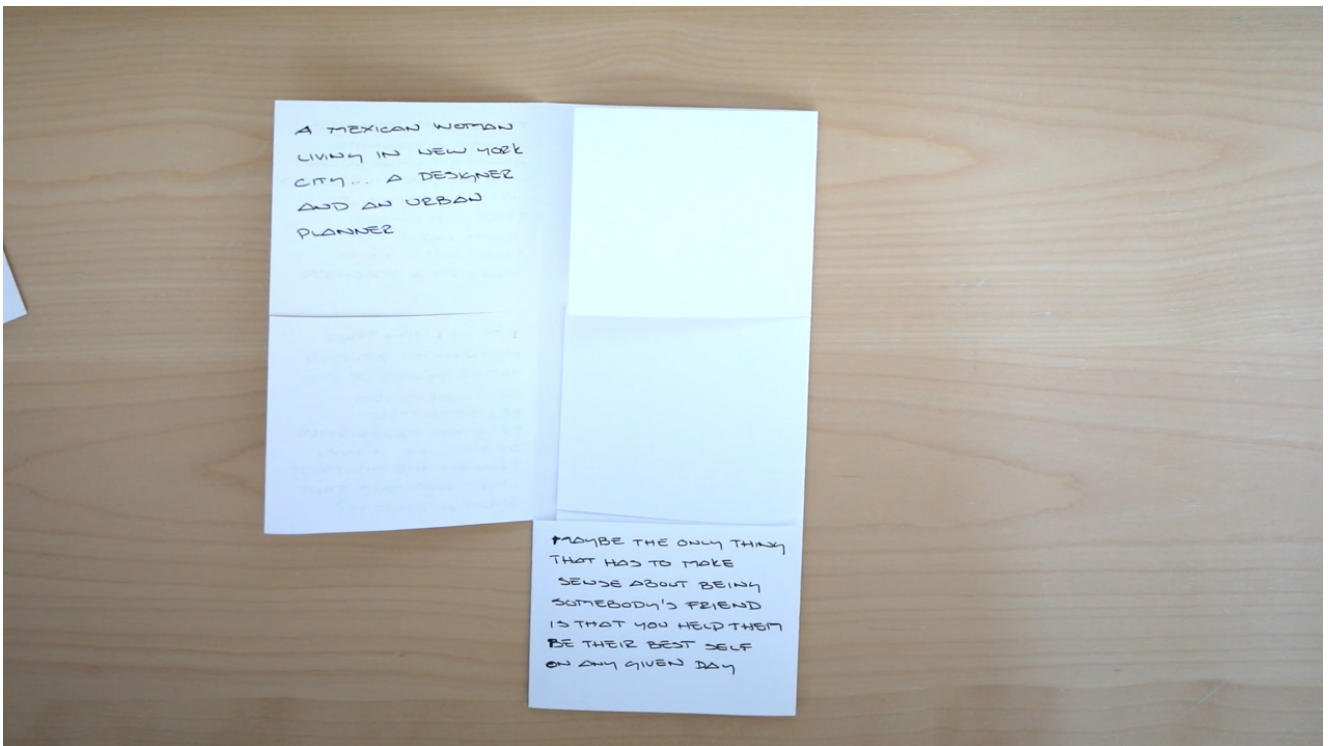 A MEXICAN WOMAN
LIVING IN NEW YORK
CITY... A DESIGNER
AND AN URBAN
PLANNER
MAYBE THE ONLY THING
THAT HAS TO MAKE
SENSE ABOUT BEING
SOMEBODY'S FRIEND
IS THAT YOU HELP THEM
BE THEIR BEST SELF
ON ANY GIVEN DAY